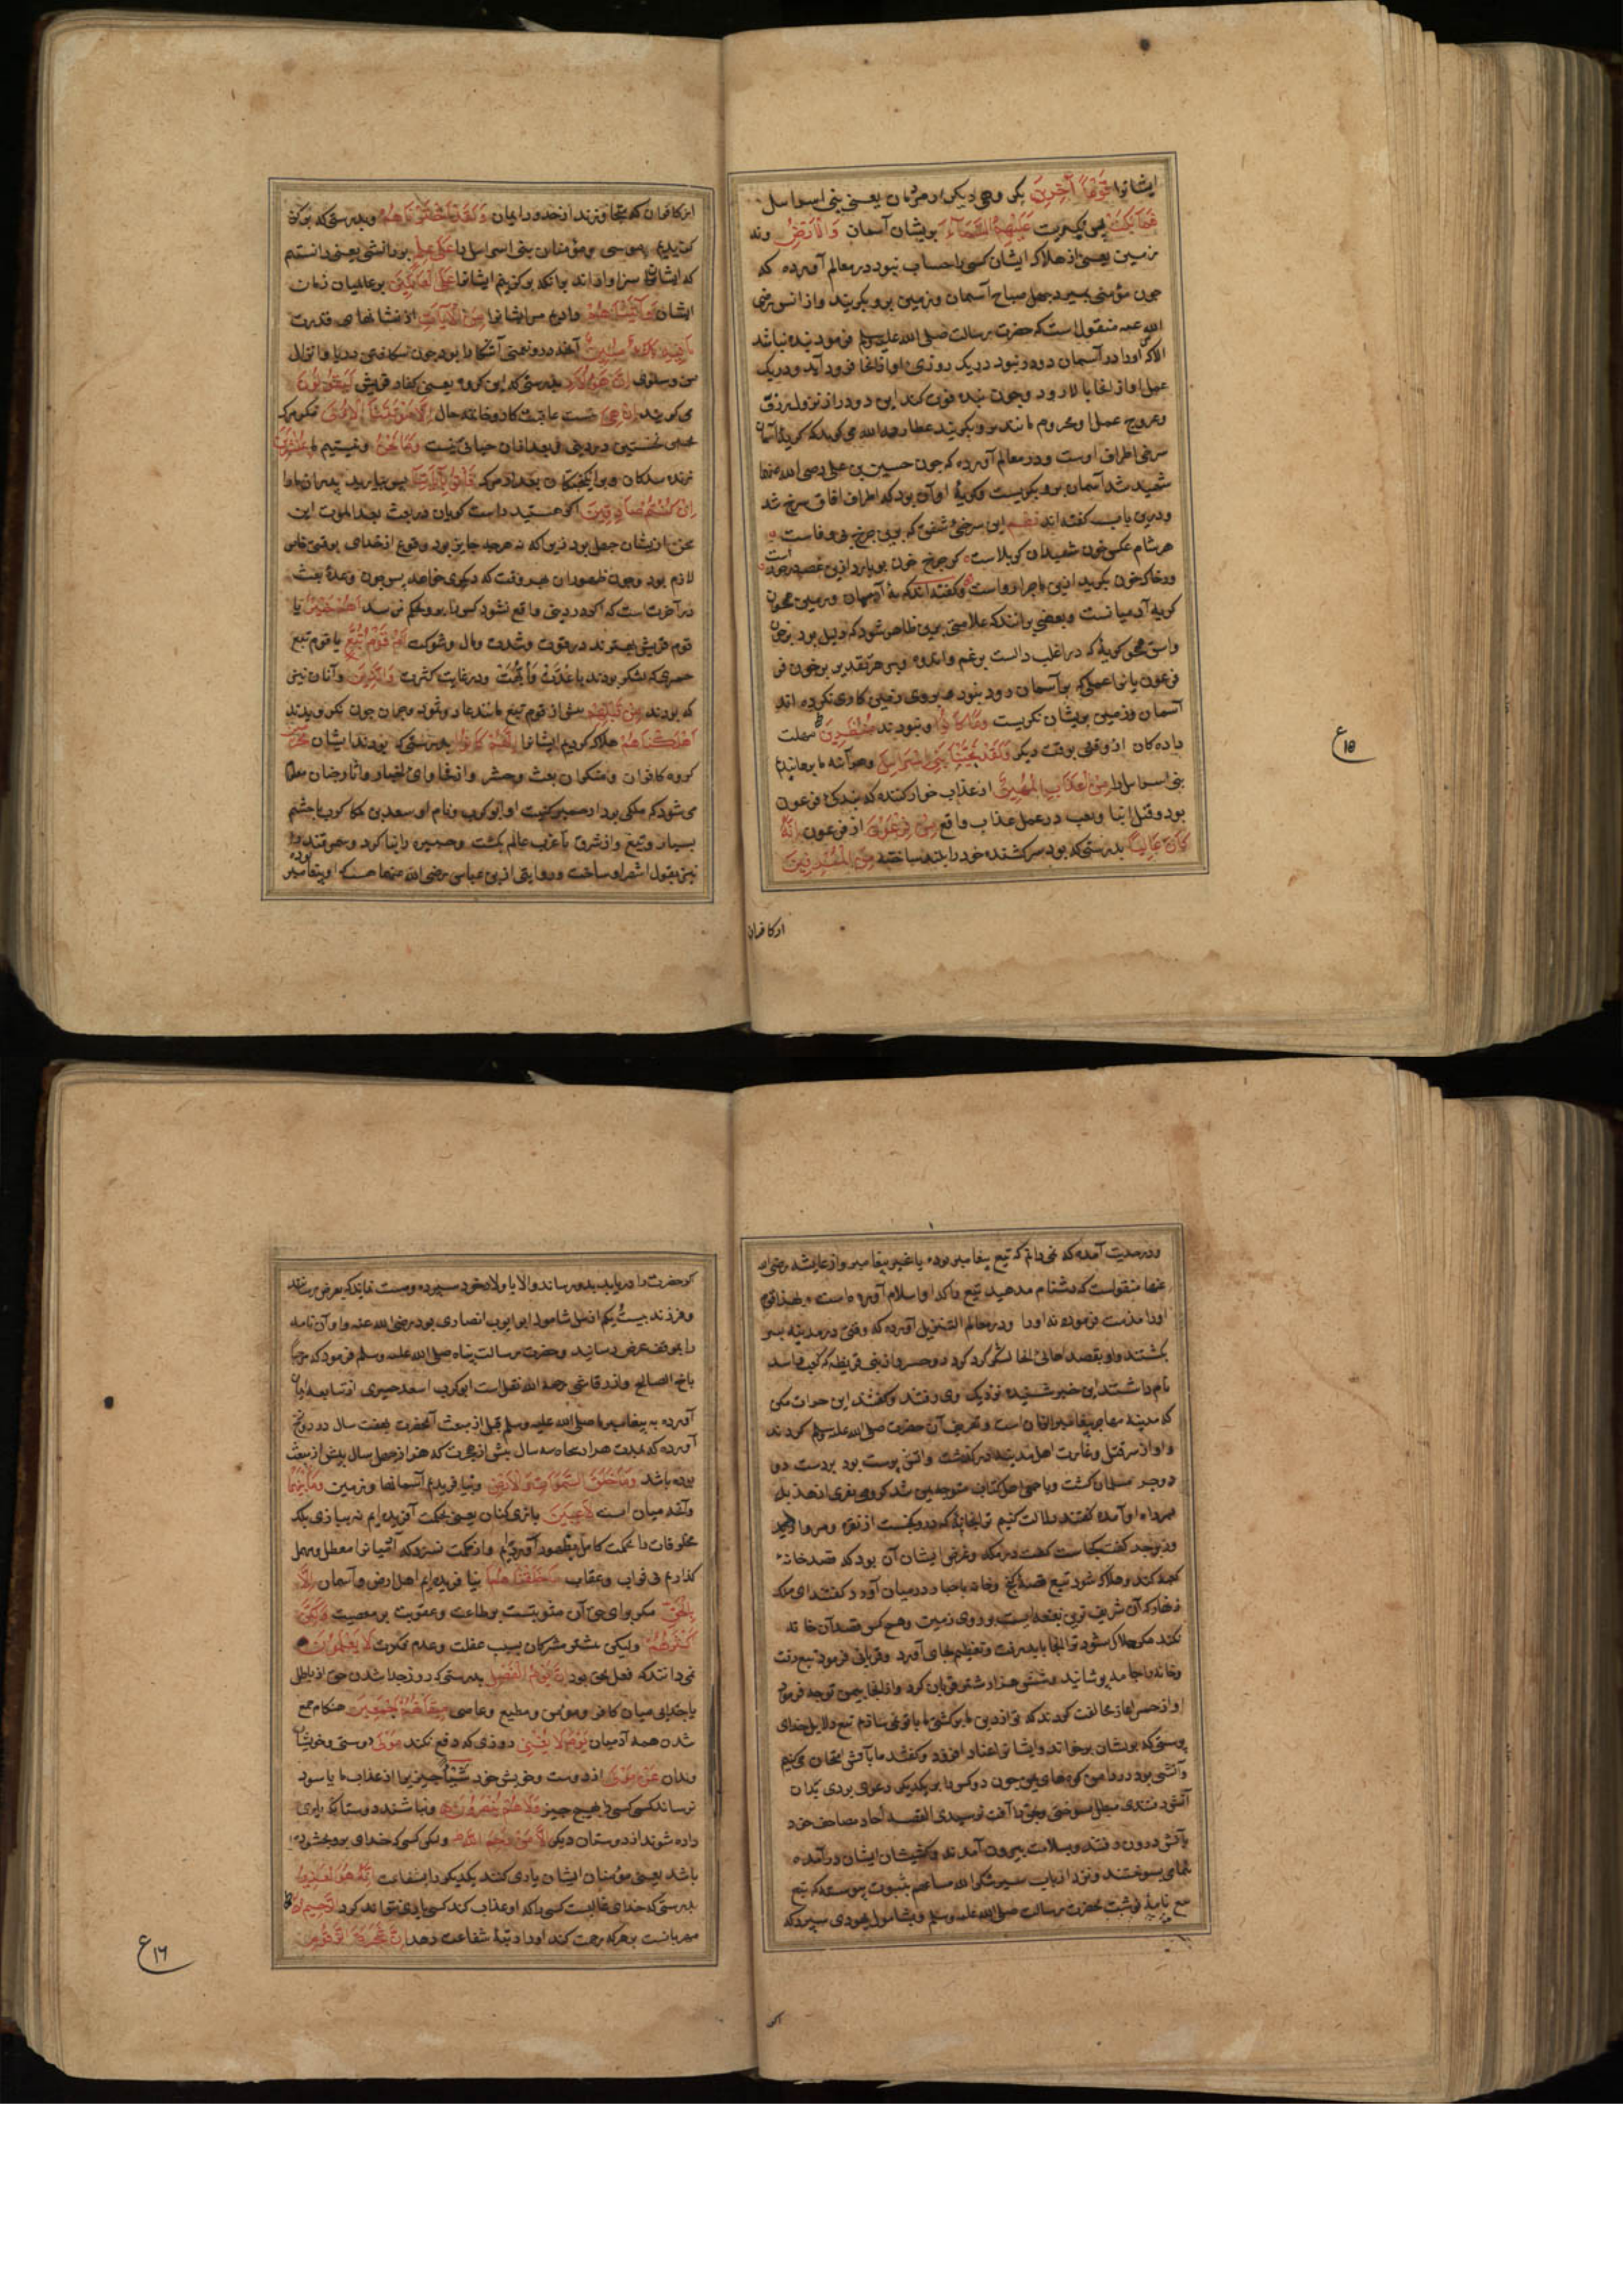 ایشانرا قَوْماً آخَرِینَ بکروهی دیکر از مردمان یعنی بنی اسراسل
فَمَا بَکَتْ پس نکریست عَلَیْهِمُ السَّمَآءُ بریشان آسمان وَالْاَرْضُ ونه
زمین یعنی از هلاک ایشان کسی را حساب نبود در معالم آورده که
جون مؤمنی بمیرد چهل صباح آسمان وزمین برو بکریند واز انس رضی
الله عنه منقول است که حضرت رسالت صلی الله علیه وسلم فرمود بنده نباشد
الا که او را در آسمان دو در بود در یک روزی او از انجا فرود آید ودر یک
عمل او از انجا بالا رود وجون بنده فوت کند این دو در از نزول رزق
وعروج عمل او محروم مانند برو بکریند عطا رحمه الله می کوید که کریهٔ آسمان
سرخی اطراف اوست ودر معالم آورده که جون حسین بن علی رضی الله عنهما
شهید شد آسمان برو بکریست وکریهٔ او آن بود که اطراف افاق سرخ شد
ودرین باب کفته اند نظم این سرخی شفق که برین جرخ بی وفاست
هر شام عکس خون شهیدان کربلاست کر جرخ خون ببارد ازین غصه در خورست
ور خاک خون بکرید ازین ماجرا رواست وکفته اند که کریهٔ آسمان وزمین همجون
کریهٔ آدمیانست وبعضی برانند که علامتی بریشان ظاهر شود که دلیل بود بر حزن
واسف همجو کریه که در اغلب دالست بر غم واندوه وبر هر تقدیر بر خون فی
فرعون یا نرا عملی که بر آسمان رود نبود وبر روی زمین کاری نکرده اند
آسمان وزمین بریشان نکریست وَمَا کَانُوا ونبودند مُنْظَرِینَ مهلت
داده کان از وقتی بوقت دیکر وَلَقَدْ نَجَّیْنَا بَنِی اِسْرَاسِلَ وهر آینه ما برهانیدیم
بنی اسراسل را مِنَ الْعَذَابِ الْمُهِینِ از عذاب خوار کننده که بندکی فرعون
بود وقتل ابنا وتعب در عمل عذاب واقع مِنْ فِرْعَوْنَ از فرعون اِنَّهُ
کَانَ عَالِیاً بدرستی که بود سرکشنده خود را بلند ساخته مِنَ الْمُسْرِفِینَ
از کافران
۱۵ ع
از کافران که تجاوزند از حد در ایمان وَلَقَدِ اخْتَرْنَاهُمْ وبدرستی که برکز
کزیدیم موسی ومؤمنان بنی اسراسل را عَلَی عِلْمٍ بر دانشی یعنی دانستیم
که ایشان سزاوارند بانکه برکزینیم ایشانرا عَلَی الْعَالَمِینَ بر عالمیان زمان
ایشان وَآتَیْنَاهُمْ ودادیم مر ایشانرا مِنَ الْآیَاتِ از نشانهای قدرت
مَا فِیهِ بَلَاءٌ مُبِینٌ آنچه درو نعمتی آشکارا بود جون شکافتن دریا وانزال
من وسلوی اِنَّ هَؤُلَاءِ بدرستی که این کروه یعنی کفار قریش لَیَقُولُونَ
می کویند اِنْ هِیَ نیست عاقبت کار وخاتمه حال اِلَّا مَوْتَتُنَا الْاُولَی مکر مرک
نخستین در دنیا وبعد از آن حیاتی نیست وَمَا نَحْنُ ونیستیم ما بِمُنْشَرِینَ
زنده شدکان وبرانکیختکان بعد از مرک فَأْتُوا بِآبَائِنَا پس بیارید پدران ما را
اِنْ کُنْتُمْ صَادِقِینَ اکر هستید راست کویان در بعث بعد الموت این
سخن از ایشان جهل بود زیرا که هر چه جایز بود وقوع از خدای بوقتی خاص
لازم بود وجون ظهور آن هر وقت که دیکری خواهد پس جون وعدهٔ بعث
در آخرت است که اکر در دنیا واقع نشود کس را برو تحکم نرسد اَهُمْ خَیْرٌ یا
قوم قریش بهترند در قوت وشدت ومال وشوکت اَمْ قَوْمُ تُبَّعٍ یا قوم تبع
حمیری که لشکر بودند با عُدَّتْ وابُهَّتْ ودر غایت کثرت وَالَّذِینَ وآنان نیز
که بودند مِنْ قَبْلِهِمْ پیش از قوم تبع مانند عاد وثمود وجمعی آن جون نکرویدند
اَهْلَکْنَاهُمْ هلاک کردیم ایشانرا اِنَّهُمْ کَانُوا بدرستی که بودند ایشان مُجْرِمِینَ
کروه کافران ومنکران بعث وحشر واز فحاوای اخبار وآثار رضان معلوم
می شود که ملکی بود از حمیر کنیت او ابو کرب ونام او سعد بن ملکا کرب با حشم
بسیار وتبع واز شرق تا غرب عالم بکشت وحصین را بنا کرد وسمرقند را
نیز بقول اشهر او ساخت وروایتی از بن عباس رضی الله عنهما هست که او پیغامبر
ودر حدیث آمده که نمی دانم که تبع پیغامبر بوده یا غیر پیغامبر واز عایشه رضی الله
عنها منقولست که دشنام مدهید تبع را که او اسلام آورده است وخدا قوم
او را مذمت فرموده نه او را ودر معالم التنزیل آورده که وقتی در مدینه پسر
بکشتند واو بقصد اهالی انجا لشکر کرد کرد دو حبر از بنی قریظه که کعب واسد
نام داشتند این خبر شنیده نزدیک وی رفتند وکفتند این حرات مکن
که مدینه مهاجر پیغامبر آخر زمان است وتعریف آن حضرت صلی الله علیه وسلم کردند
واو از سر قتل وغارت اهل مدینه در کذشت واتش پرست بود بر دست دو
دو حبر مسلمان کشت وبا جمعی اهل کتاب متوجه یمن شد کروهی نفری از هذیل
همراه او آمده کفتند دلالت کنیم ترا بخانهٔ که درو کنجست از نقره ومروارید
وزبرجد کفت کجاست کفت در مکه وغرض ایشان آن بود که قصد خانهٔ
کعبه کند وهلاک شود تبع قصهٔ کنج وخانه با احبار در میان آورد کفتند ای ملک
زنهار که آن شریف ترین بقعه ایست بر روی زمین وهیچ کس قصد آن خانه
نکند مکر هلاک شود ترا انجا باید رفت وتعظیم بجای آورد وقربانی فرمود تبع رفت
وخانه را جامه پوشانید وشش هزار شتر قربان کرد واز انجا بیمن توجه فرمود
او از حمیر اغاز مخالفت کردند که تو از دین ما برکشتی ما با تو نمی سازیم تبع دلایل خدای
پرستی که بریشان برخواند وایشانرا عناد افزود وکفتند ما بآتش امتحان می کنیم
وآتشی بود در دامن کوههای یمن جون دو کس را بر یکدیکر دعوی بردی بدان
آتش رفتندی مبطل بسوختی ومحق را آفت نرسیدی القصه احبار مصاحف خود
بآتش درون رفتند وبسلامت بیرون آمدند وکشیشان ایشان در آمده
تمامی بسوختند ونزد ارباب سیر شکر الله مساعیهم بثبوت پیوسته که تبع
تبع نامهٔ نوشت بحضرت رسالت صلی الله علیه وسلم وبشامول یهودی سپرد که
اکر
کر حضرت را دریابد بدو رساند والا باولاد خود سپرده وصیت نماید که بعرض رسانند
وفرزند بیست ویکم از نسل شامول ابو ایوب انصاری بود رضی الله عنه واو آن نامه
را بموقف عرض رسانید وحضرت رسالت پناه صلی الله علیه وسلم فرمود که مرحبا
باخ الصالح واز رقاشی رحمه الله نقل است ابو کرب اسعد حمیری از تبابعه ایمان
آورده به پیغامبر ما صلی الله علیه وسلم قبل از بعث آنحضرت بهفت سال در درج
آورده که بمدت هزار وپنجاه سه سال پیش از هجرت که هزار وچهل سال پیش از بعث
بوده باشد وَمَا خَلَقْنَا السَّمَوَاتِ وَالْاَرْضَ ونیافریدیم آسمانها وزمین وَمَا بَیْنَهُمَا
وآنچه میان است لَاعِبِینَ بازی کنان یعنی بحکمت آفریده ایم نه ببازی بلکه
مخلوقات را بحکمت کامل بظهور آوردیم واز حکمت نسزد که آشیانرا معطل ومهمل
کذاریم بی ثواب وعقاب مَا خَلَقْنَاهُمَا نیافریده ایم اهل ارض وآسمان اِلَّا
بِالْحَقِّ مکر برای حق آن مثوبتست بر طاعت وعقوبت بر معصیت وَلَکِنَّ
اَکْثَرَهُمْ ولیکن بیشتر مشرکان بسبب غفلت وعدم فکرت لَا یَعْلَمُونَ
نمی دانند که فعل بحق بود اِنَّ یَوْمَ الْفَصْلِ بدرستی که روز جدا شدن حق از باطل
یا جدایی میان کافر ومؤمن ومطیع وعاصی مِیقَاتُهُمْ اَجْمَعِینَ هنکام جمع
شدن همه آدمیان یَوْمَ لَا یُغْنِی روزی که دفع نکند مَوْلًی دوستی وخویشا
وندان عَنْ مَوْلًی از دوست وخویش خود شَیْئاً چیزی را از عذاب ما یا سود
نرساند کسی کسی را بهیچ چیز وَلَا هُمْ یُنْصَرُونَ ونباشند دوستان که یاری
داده شوند از دوستان دیکر اِلَّا مَنْ رَحِمَ اللّٰهُ ولکن کسی که خدای برو بخشوده
باشد یعنی مؤمنان ایشان یاری کنند یکدیکر را بشفاعت اِنَّهُ هُوَ الْعَزِیزُ
بدرستی که خدای غالبست کسی را که او عذاب کند کسی یاری نتواند کرد الرَّحِیمُ
مهربانست بر هر که رحمت کند او را رتبهٔ شفاعت دهد اِنَّ شَجَرَةَ الزَّقُّومِ
۱۶ ع